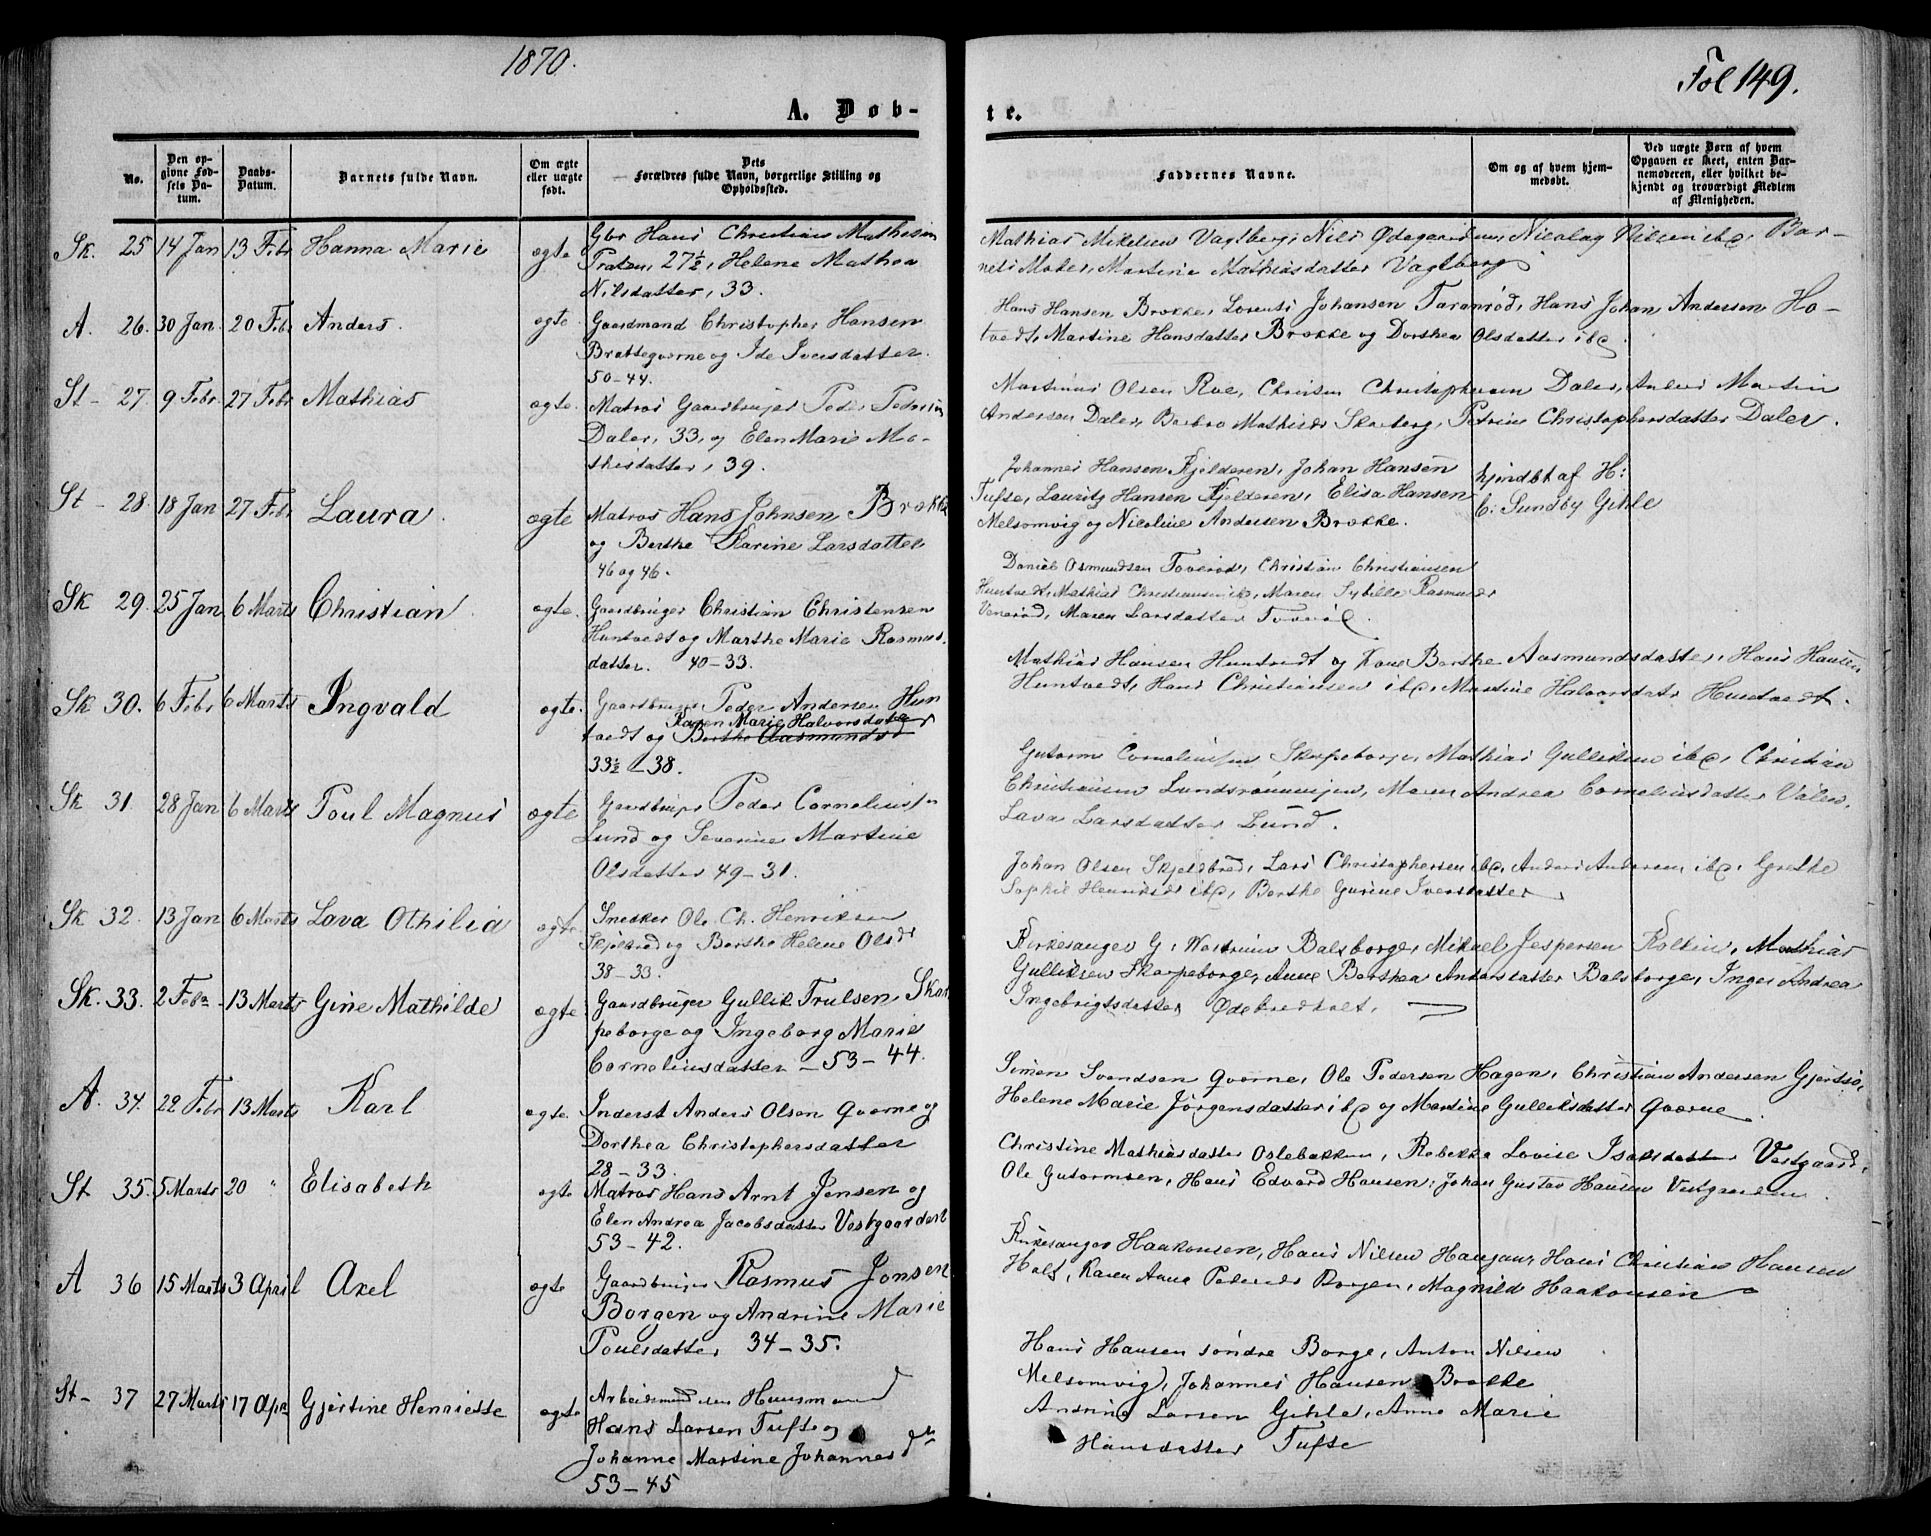 1870.
Fol 149.
A. Døb-
te.
No.
Den op-
givne Fød-
sels Da-
tum.
Daabs-
Datum.
Barnets fulde Navn.
Om ægte
eller uægte
født.
Dets
Forældres fulde Navn, borgerlige Stilling og
Opholdssted.
Faddernes Navne.
Om og af hvem hjem-
medøbt.
Ved uægte Børn af hvem
Opgaven er skeet, enten Bar-
nemoderen, eller hvilket be-
kjendt og troværdigt Medlem
af Menigheden.
Sk. 25 14 Jan 13 Febr Hanna Marie ægte Gbr Hans Christian Mathisen
Pratzn, 27½, Helene Mathea
Nilsdatter, 33.
Mathias Mikelsen Vagtberg, Nils Ødegaarden, Nicolay Nilsen ibd, Bar-
nets Moder, Martine Mathiasdatter Vagtberg
A. 26. 30 Jan 20 Febr Anders. ægte. Gaardmand Christopher Hansen
Brattegverne og Ide Iversdatter.
50-44.
Hans Hansen Brække, Lorents Johansen Taranrød, Hans Johan Andersen Ho-
tvedt, Martine Hansdatter Brække og Dorthea Olsdatter ibd
St - 27. 9 Febr 27 Febr Mathias ægte. Matros Gaardbruger Peder Pedersen
Daler, 33, og Elen Marie Ma-
thisdatter, 39.
Martinus Olsen Roe, Christen Christophersen Daler, Anders Martin
Andersen Daler, Barbro Mathisdr Skarberg, Petrine Christophersdatter Daler.
St - 28. 18 Jan 27 Febr Laura ægte Matros Hans Johnsen Brække
og Berthe Karine Larsdatter
46 og 46.
Johannes Hansen Kjelderen, Johan Hansen
Tufte, Lauritz Hansen Kjelderen, Elisa Hansen
Melsomvig og Nicoline Andersen Brække.
hjmdbt af H:
C: Sundby Gihle
Sk 29. 25 Jan 6 Marts Christian ægte. Gaardbruger Christian Christensen
Huntvedt og Marthe Marie Rasmus-
datter. 40-33.
Daniel Osmundsen Toverød, Christian Christiansen
Huntvedt, Mathias Christiansen ibd, Maren Sybille Rasmusdr
Venerød, Maren Larsdatter Toverød.
Sk 30. 6 Febr 6 Marts Ingvald ægte. Gaardbruger Peder Andersen Hun
Karen Marie Halvorsdatter
tvedt og Berthe Aasmundsd
33½-38.
Mathias Hansen Huntvedt og Kone Berthe Aasmundsdatter, Hans Hansen
Huntvedt, Hans Christiansen ibd, Martine Halvorsdatr Huntvedt.
Sk 31. 28 Jan 6 Marts Poul Magnus ægte Gaardbruger Peder Cornelius-
Lund og Severine Martine
Olsdatter 49-31.
Gutorm Corneliussen Skarpeborge, Mathias Gulliksen ibd, Christian
Christiansen Lundsrønningen, Maren Andrea Corneliusdatter Valen,
Lava Larsdatter Lund.
Sk 32. 13 Jan 6 Marts Lava Othilia ægte Snedker Ole Ch. Henriksen
Skjelbred og Berthe Helene Olsdr
38-33.
Johan Olsen Skjeldbred, Lars Christophersen ibd, Anders Andersen ibd, Grethe
Sophie Henriksdr ibd, Berthe Gurine Iversdatter
Sk. 33. 2 Febr 13 Marts Gine Mathilde ægte Gaardbruger Gullik Trulsen Skar
peborge og Ingeborg Marie
Corneliusdatter - 53-44.
Kirkesanger G. Westrum Balsborge, Mikael Jespersen Rolkin, Mathias
Gulliksen Skarpeborge, Anne Berthea Andersdatter Balsborge, Inger Andrea
Ingebrigtsdatter Ødebredholt.
A. 34. 22 Febr 13 Marts Karl ægte. Inderst Anders Olsen Qværne og
Dorthea Christophersdatter
28-33.
Simen Svendsen Qværne, Ole Pedersen Hagen, Christian Andersen Gjertsø,
Helene Marie Jørgensdatter ibd og Martine Gulliksdatter Qværne.
St 35. 5 Marts 20 " Elisabeth ægte Matros Hans Arnt Jensen og
Elen Andrea Jacobsdatter Vestgaarden
53-42.
Christine Mathiasdatter Oslebakken, Rebekka Lovise Isaksdatter Vestgaard,
Ole Gutormsen, Hans Edvard Hansen, Johan Gustav Hansen Vestgaarden.
A 36 15 Marts 3 April Axel ægte Gaardbruger Rasmus Jonsen
Borgen og Andrine Marie
Poulsdatter 34-35.
Kirkesanger Haakonsen, Hans Nilsen Haugan, Hans Christian Hansen
Holt, Karen Anna Pedersdr Borgen, Magnild Haakonsen
St- 37 27 Marts 17 Apr Gjertine Henriette ægte Arbeidsmand uden Huusmand
Hans Larsen Tufte og
Johanne Martine Johannesdtr
53-45
Hans Hansen søndre Borge, Anton Nilsen
Melsomvig, Johannes Hansen Brække
Andrine Larsen Gihle, Anne Marie
Hansdatter Tufte